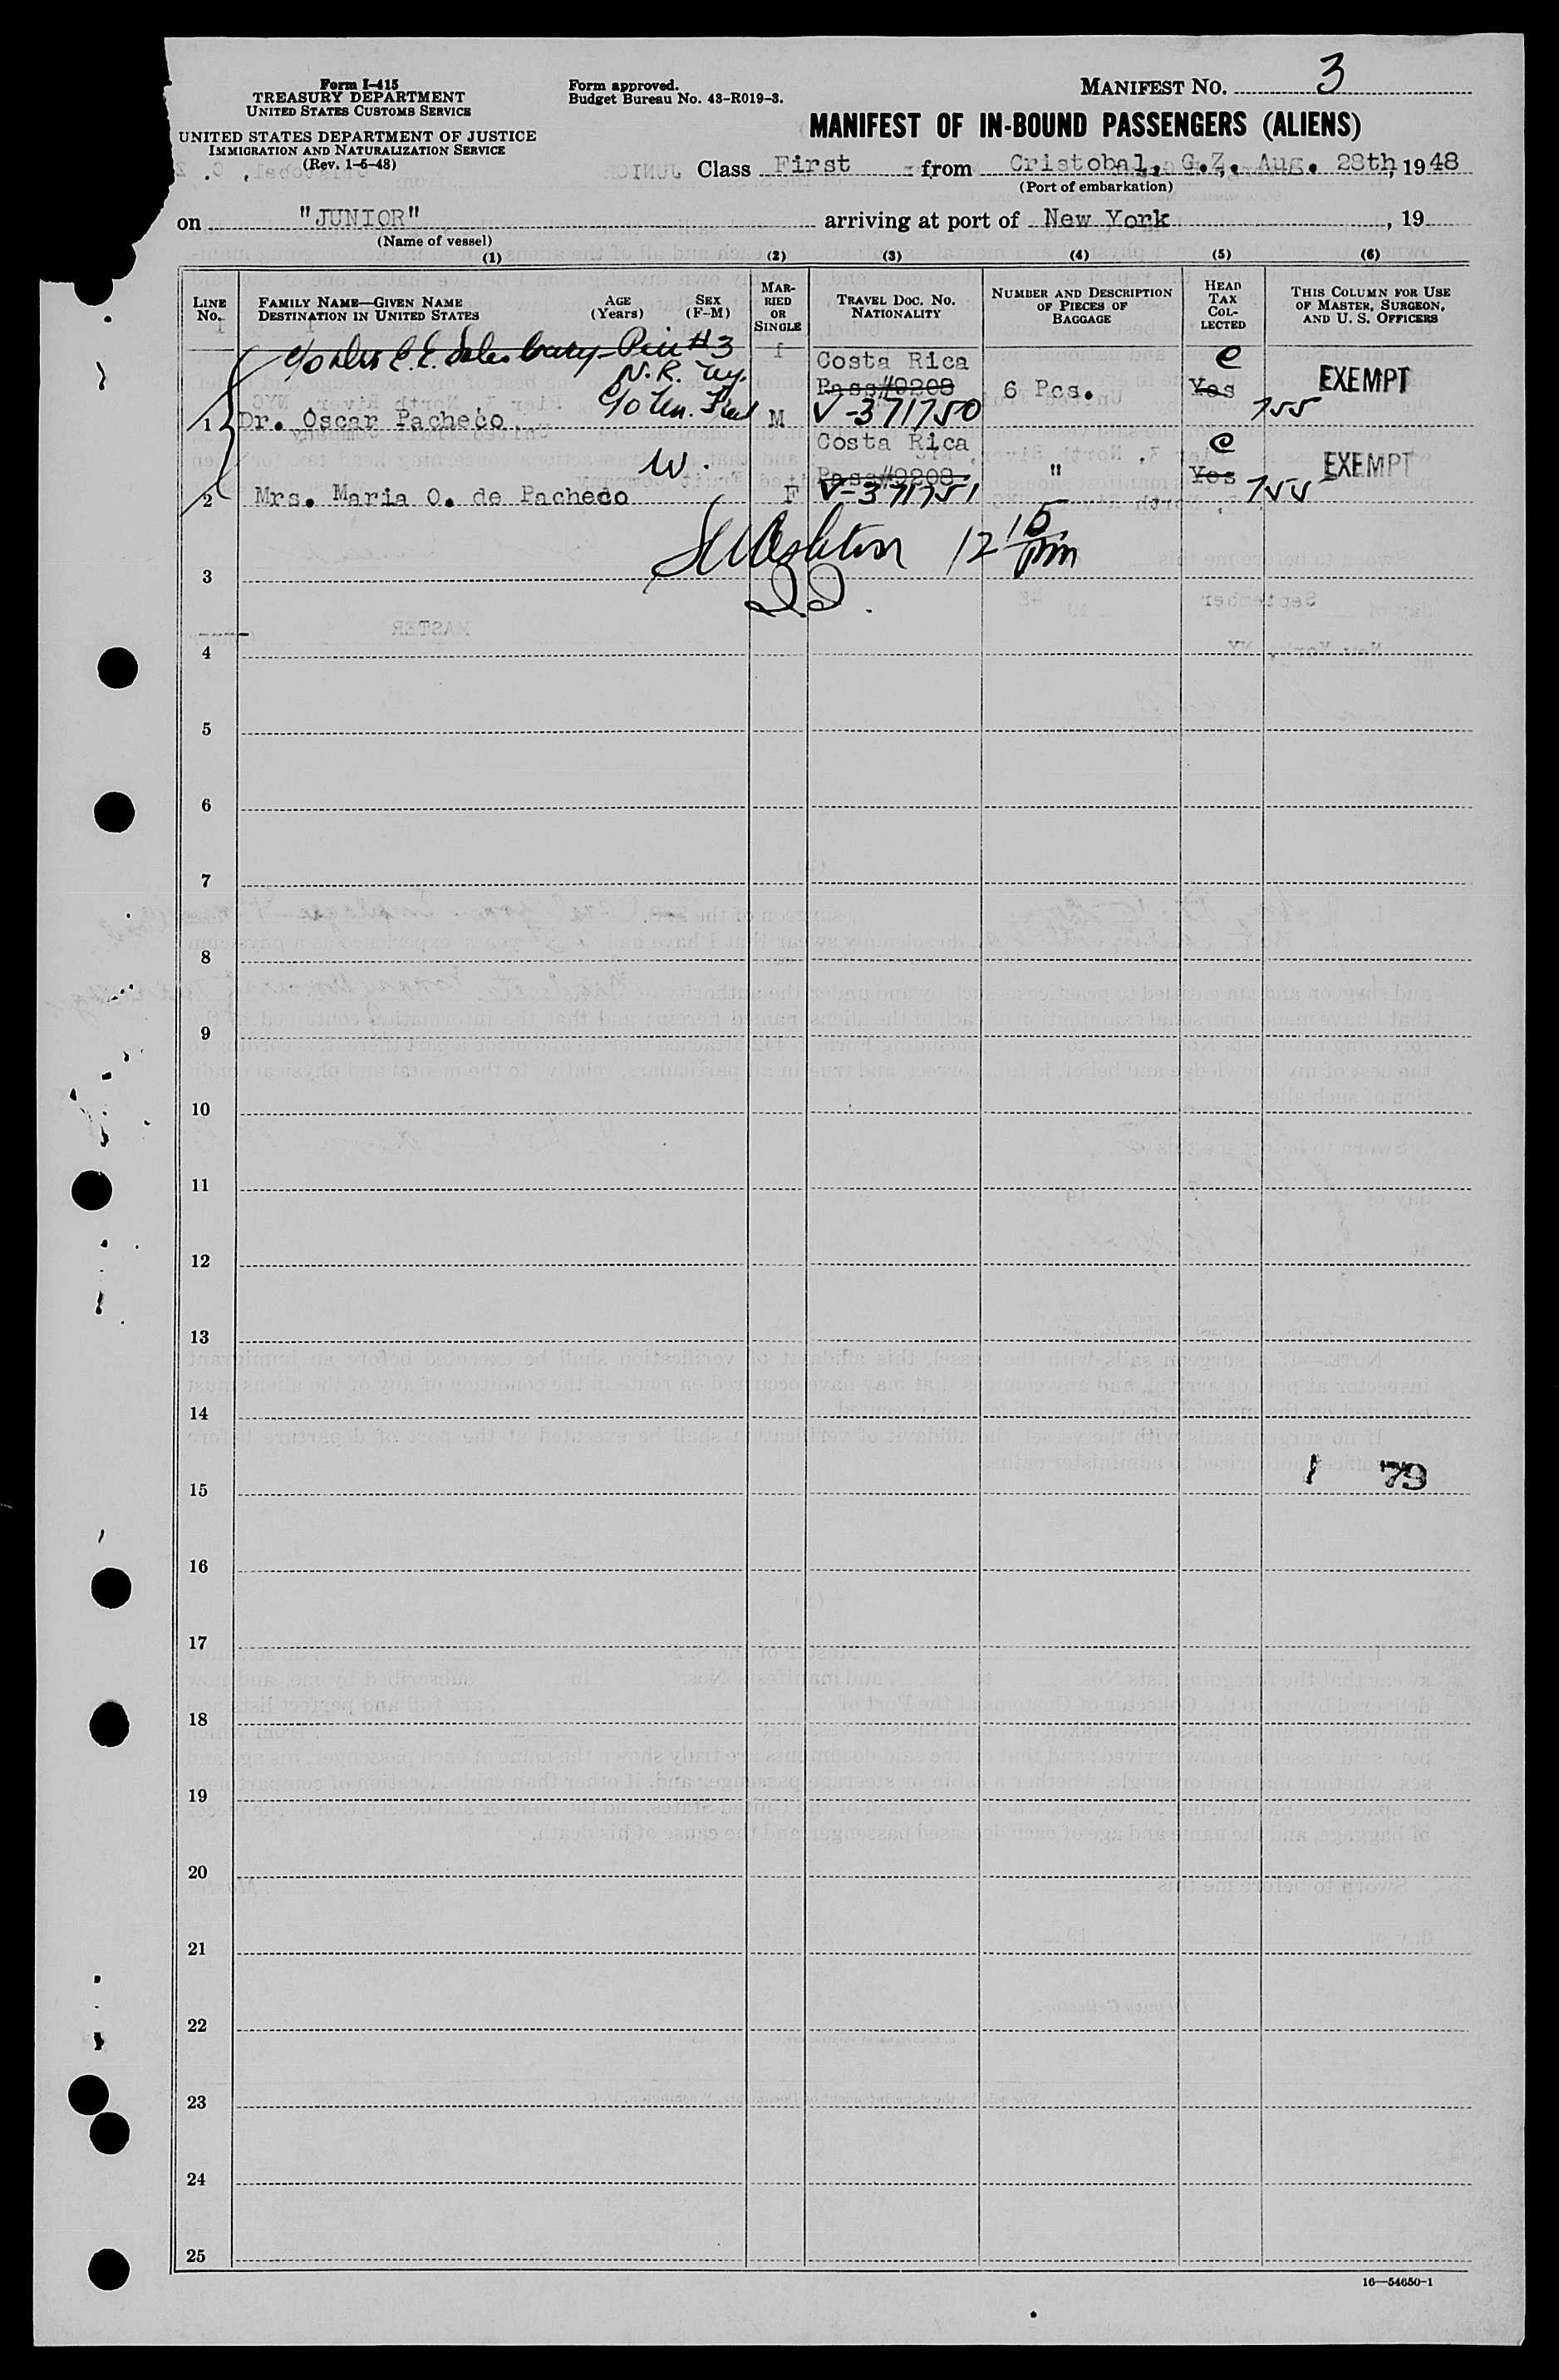 Form I-415
TREASURY DEPARTMENT
UNITED STATES CUSTOMS SERVICE
UNITED STATES DEPARTMENT OF JUSTICE
IMMIGRATION AND NATURALIZATION SERVICE
(Rev. 1-6-48)
Form approved.
Budget Bureau No. 43-R019-3.
MANIFEST NO. 3
MANIFEST OF IN-BOUND PASSENGERS (ALIENS)
Class First from Cristobal, C.Z. Aug. 28th, 1948
(Port of embarkation)
on "JUNIOR" arriving at port of New York, 19
(Name of vessel)
(1) (2) (3) (4) (5) (6)
LINE No.
FAMILY NAME—GIVEN NAME
DESTINATION IN UNITED STATES
AGE (Years)
SEX (F-M)
MARRIED OR SINGLE
TRAVEL DOC. NO.
NATIONALITY
NUMBER AND DESCRIPTION OF PIECES OF BAGGAGE
HEAD TAX COLLECTED
THIS COLUMN FOR USE OF MASTER, SURGEON, AND U. S. OFFICERS
Pier #3
Costa Rica
Pass#9208
6 Pcs.
e
Yes
EXEMPT
1 Dr. Oscar Pacheco M V-371750 755
Costa Rica
Pass#9208
"
e
Yes
EXEMPT
W.
2 Mrs. Maria O. de Pacheco F V-371751 755
12 15 pm
3
4
5
6
7
8
9
10
11
12
13
14
1 79
15
16
17
18
19
20
21
22
23
24
25
16—54650-1